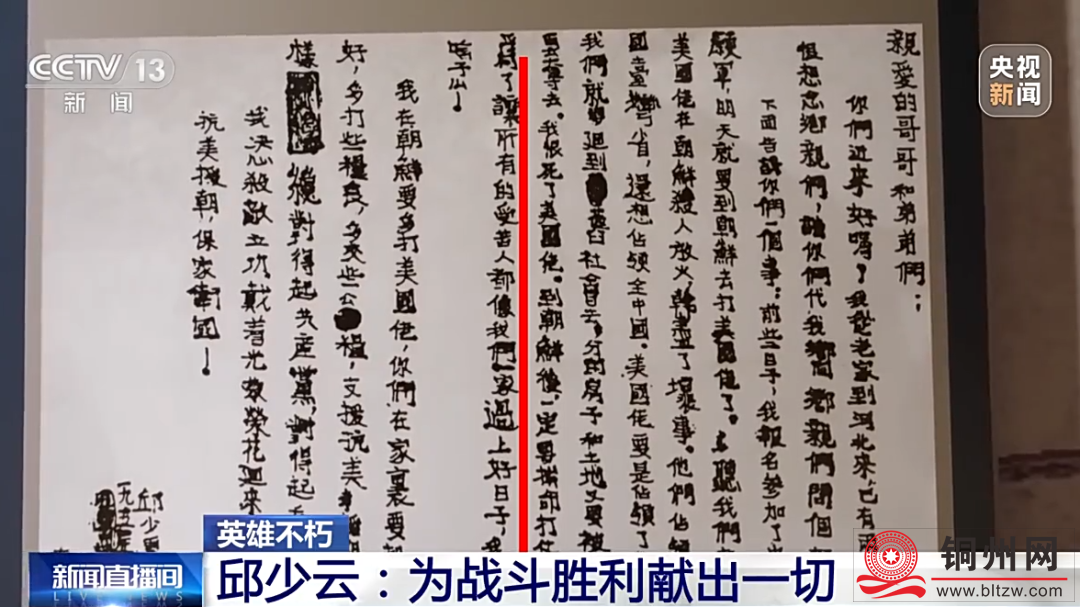 CCTV 13
新闻
央视
新闻
親愛的哥哥和弟弟們：
你們近來好嗎？我從老家到河北來，已有
但想念鄉親們，請你們代我向鄉親們問個
下面告訴你們一個事：前些日子，我報名參加了
願軍，明天就要到朝鮮去打美國佬了。聽我們
美國佬在朝鮮殺人放火，幹盡了壞事。他們佔領
國臺灣省，還想佔領全中國。美國佬要是佔領了
我們就的迴到舊社會去，分的房子和土地又要被
奪去。我恨死了美國佬。到朝鮮後，一定要拚命打
爲了讓所有的受苦人都像我們一家過上好日子，我
啥子么！
我在朝鮮要多打美國佬，你們在家裏要
好，多打些糧食，多交些公糧，支援抗美
樣纔對得起共産黨，對得起
我決心殺敵立功，戴着光榮花迴來
抗美援朝，保家衛國！
邱少
一九五
英雄不朽
新闻直播间
LIVE NEWS
邱少云：为战斗胜利献出一切
铜州网
www.bltzw.com